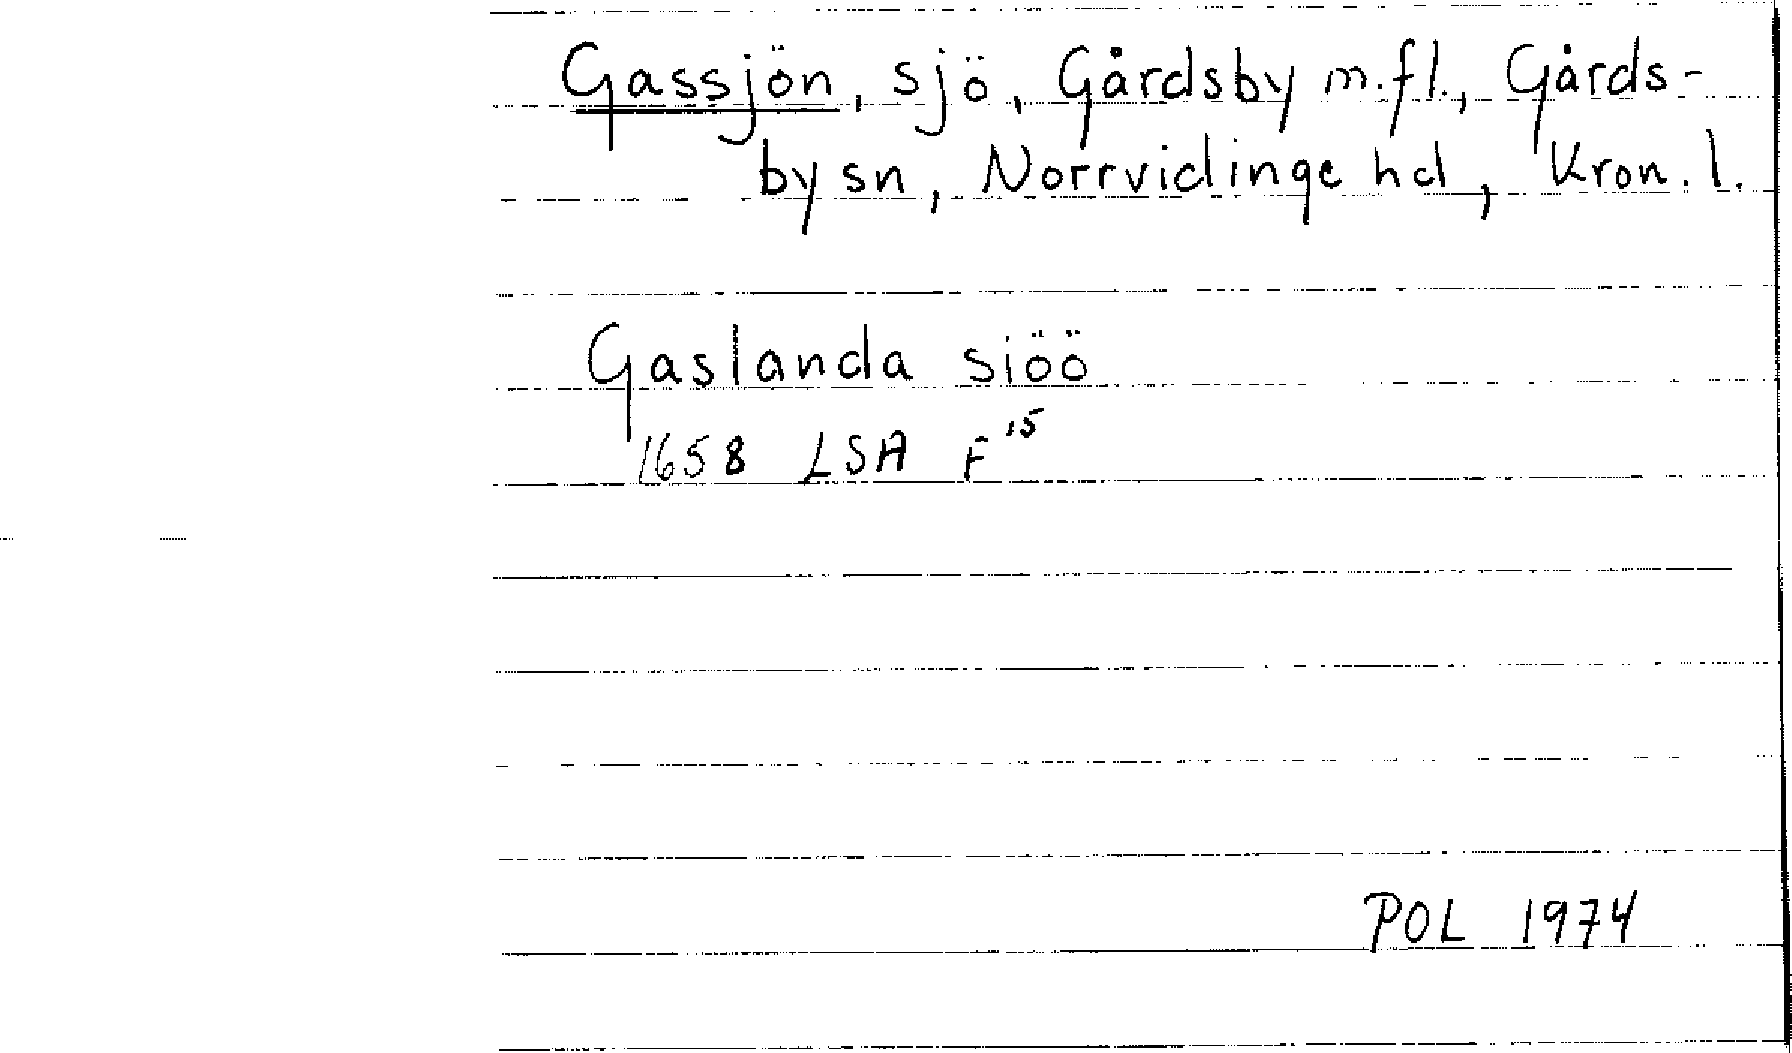 Gassjön, sjö, Gårdsby m.fl., Gårds-
by sn, Norrvidinge hd, Kron. l.
Gaslanda siöö
1658 LSA F 15
POL 1974